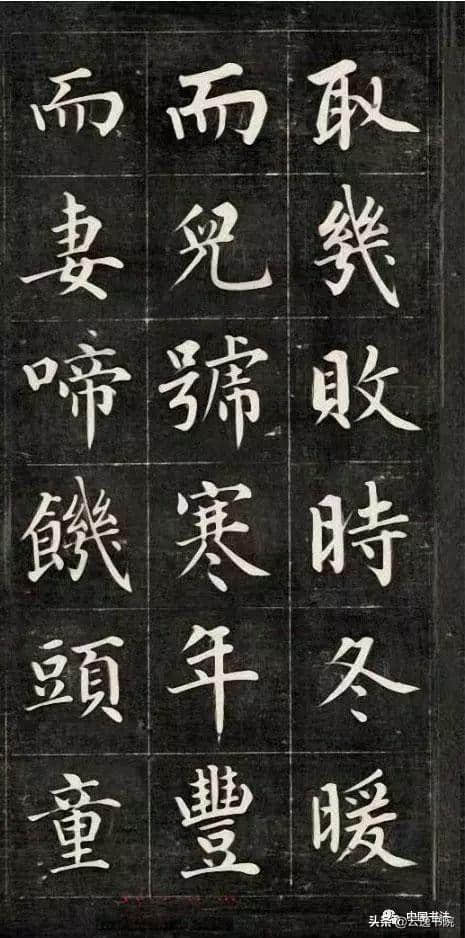 取幾敗時冬暖
而兒號寒年豐
而妻啼饑頭童
中国书法
头条@云逸书院